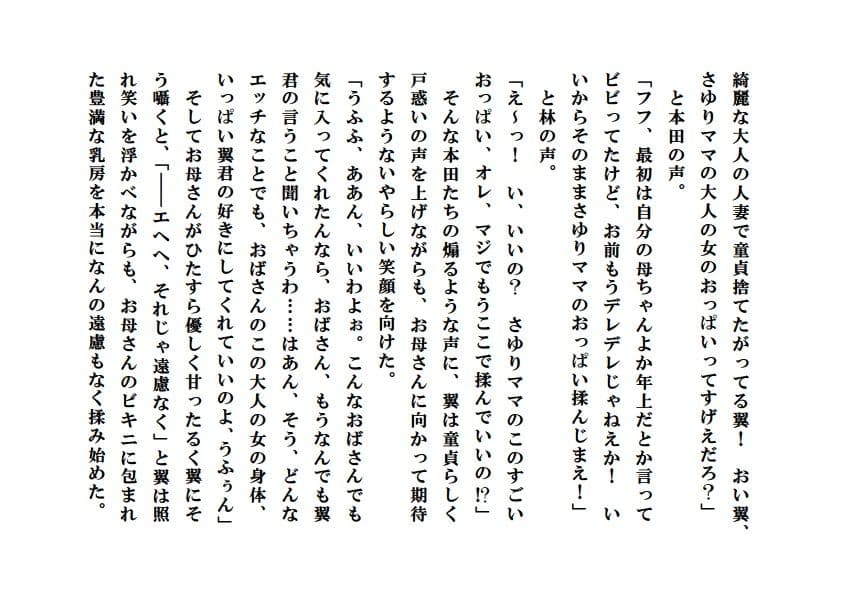 綺麗な大人の人妻で童貞捨てたがってる翼！　おい翼、
さゆりママの大人の女のおっぱいってすげえだろ？」
　と本田の声。
「フフ、最初は自分の母ちゃんよか年上だとか言って
ビビってたけど、お前もうデレデレじゃねえか！　い
いからそのままさゆりママのおっぱい揉んじまえ！」
　と林の声。
「え〜っ！　い、いいの？　さゆりママのこのすごい
おっぱい、オレ、マジでもうここで揉んでいいの!?」
　そんな本田たちの煽るような声に、翼は童貞らしく
戸惑いの声を上げながらも、お母さんに向かって期待
するようないやらしい笑顔を向けた。
「うふふ、ああん、いいわよぉ。こんなおばさんでも
気に入ってくれたんなら、おばさん、もうなんでも翼
君の言うこと聞いちゃうわ……はあん、そう、どんな
エッチなことでも、おばさんのこの大人の女の身体、
いっぱい翼君の好きにしてくれていいのよ、うふぅん」
　そしてお母さんがひたすら優しく甘ったるく翼にそ
う囁くと、「――エへへ、それじゃ遠慮なく」と翼は照
れ笑いを浮かべながらも、お母さんのビキニに包まれ
た豊満な乳房を本当になんの遠慮もなく揉み始めた。